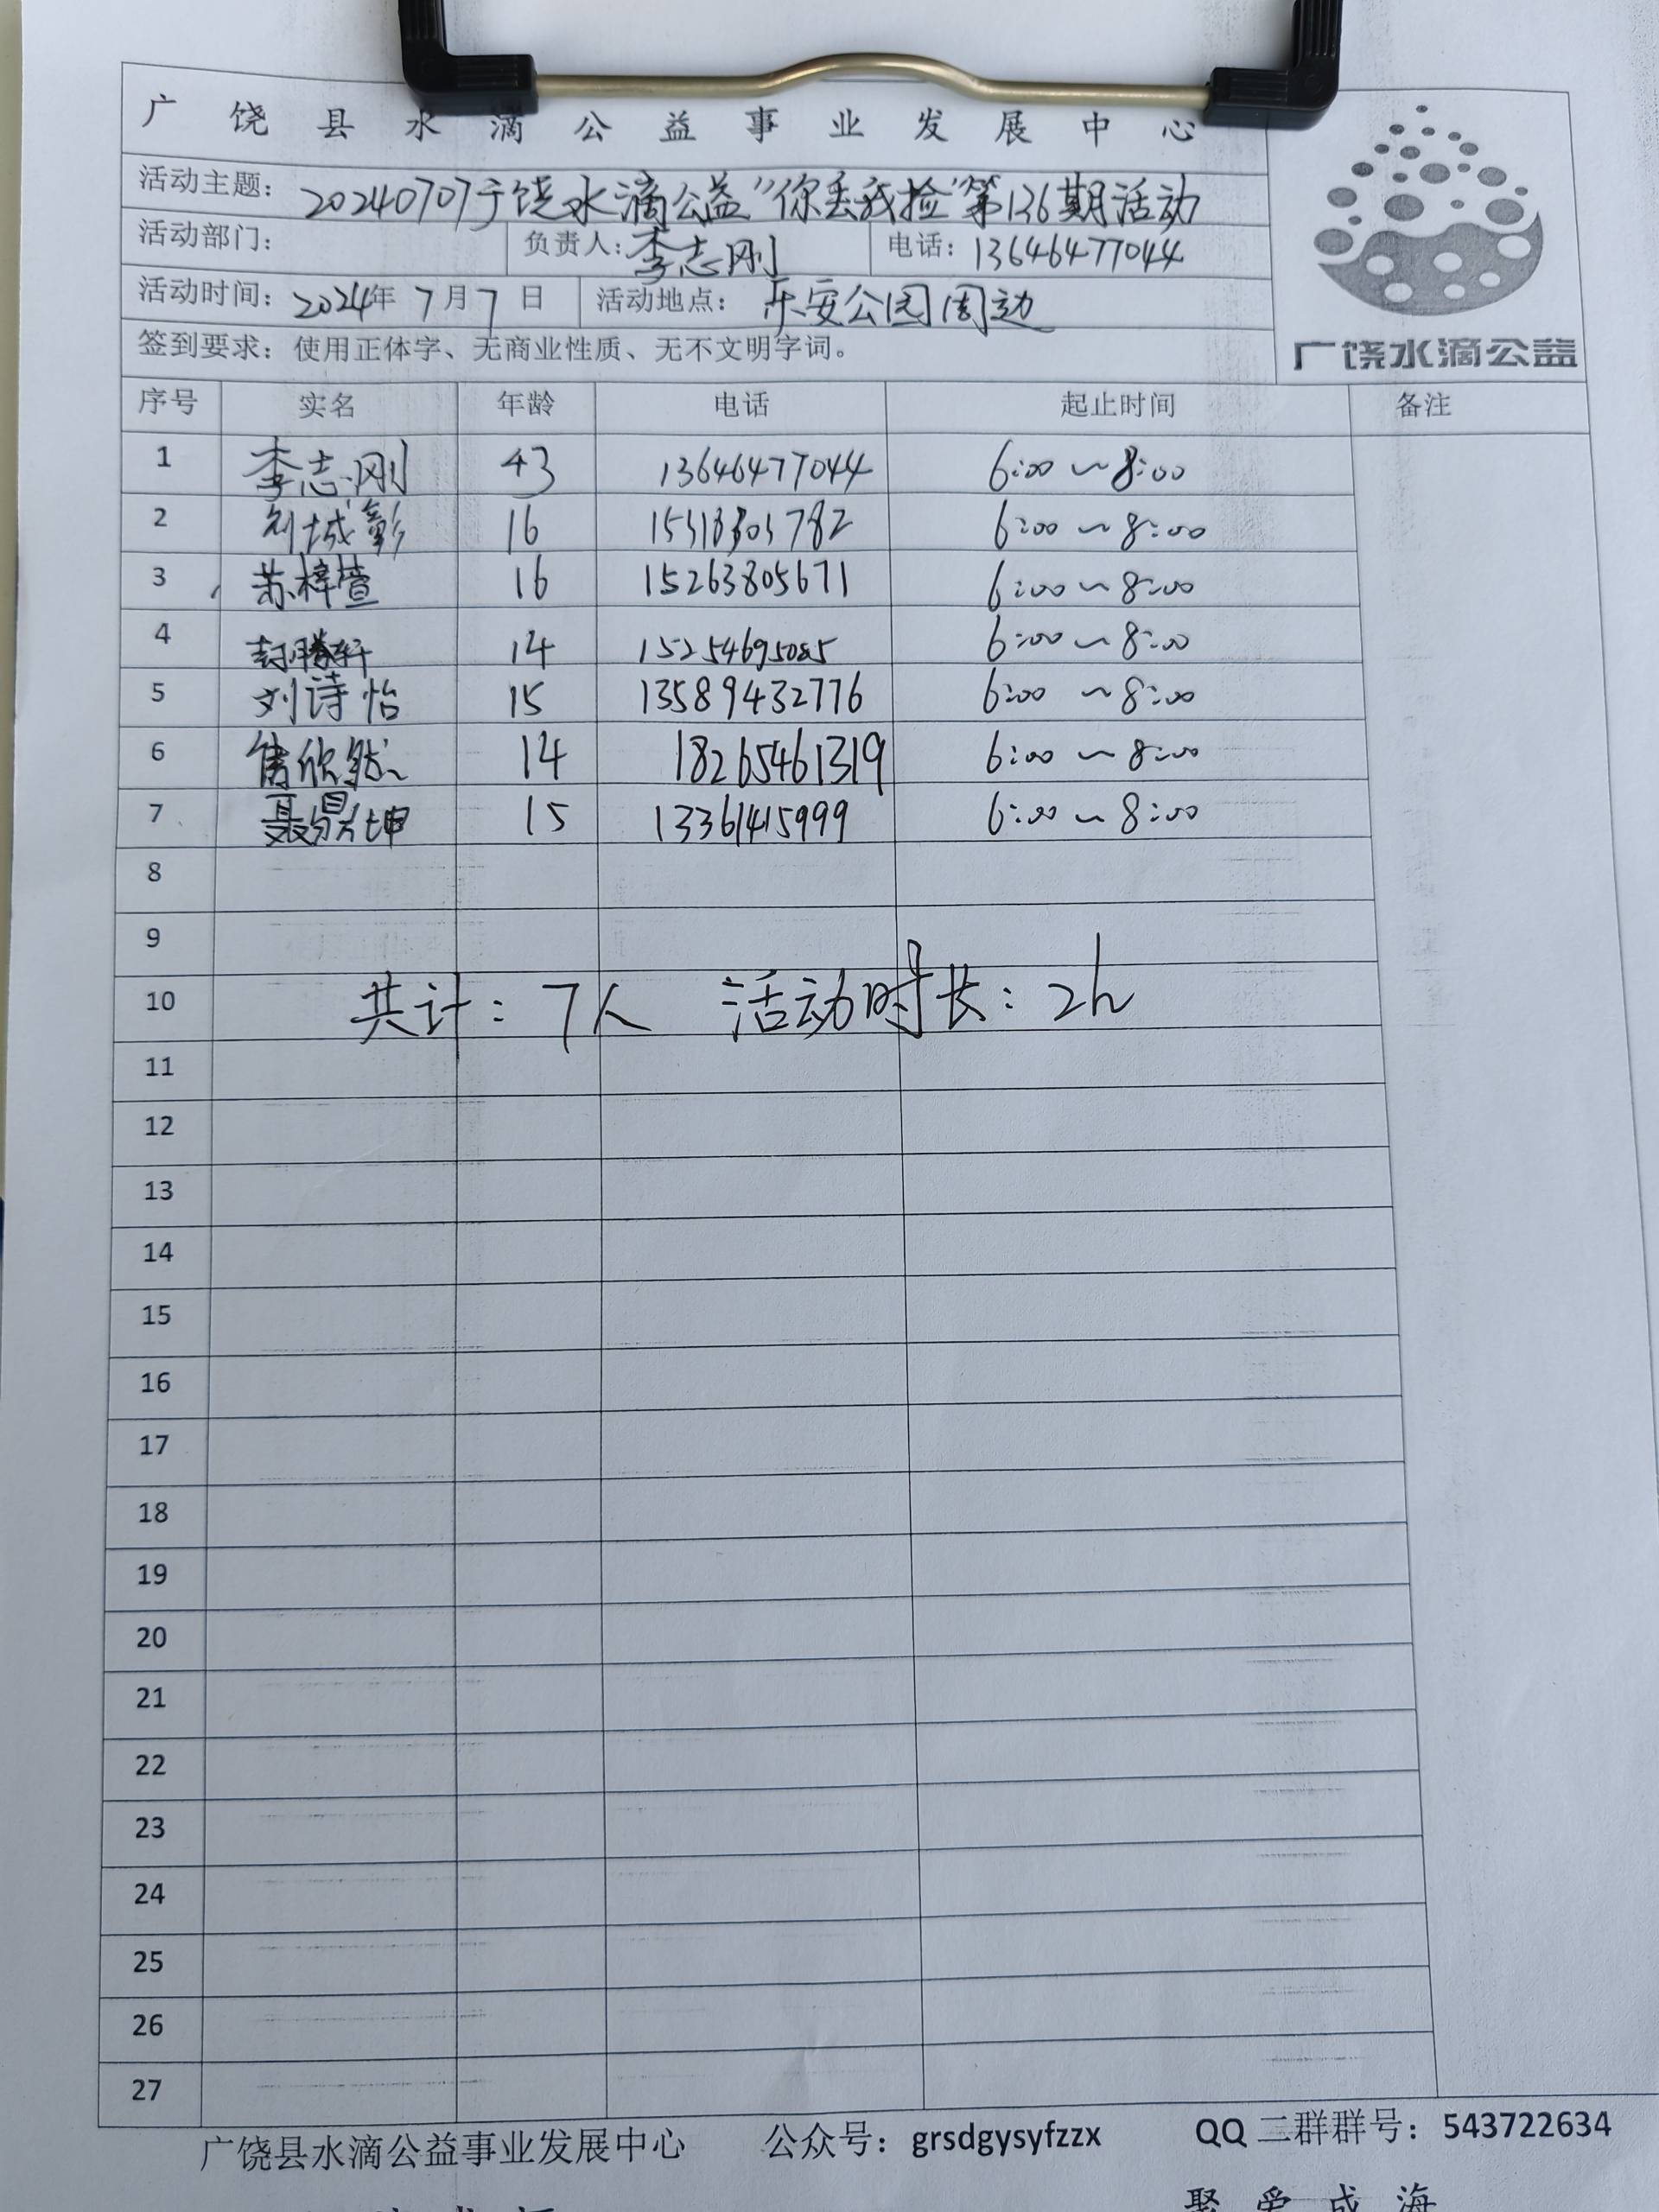 广饶县水滴公益事业发展中心
活动主题：20240707于饶水滴公益"你丢我捡"第136期活动
活动部门： 负责人：李志刚 电话：13646477044
活动时间：2024年7月7日 活动地点：乐安公园周边
签到要求：使用正体字、无商业性质、无不文明字词。
广饶水滴公益
序号 实名 年龄 电话 起止时间 备注
1 李志刚 43 13646477044 6:00~8:00
2 刘城彰 16 6:00~8:00
3 苏梓萱 16 15263805671 6:00~8:00
4 封腾轩 14 15254695085 6:00~8:00
5 刘诗怡 15 13589432776 6:00~8:00
6 隽欣然 14 18265461319 6:00~8:00
7 聂鼎坤 15 13361415999 6:00~8:00
8
9
10 共计：7人 活动时长：2h
11
12
13
14
15
16
17
18
19
20
21
22
23
24
25
26
27
广饶县水滴公益事业发展中心 公众号：grsdgysyfzzx QQ二群群号：543722634
聚爱成海